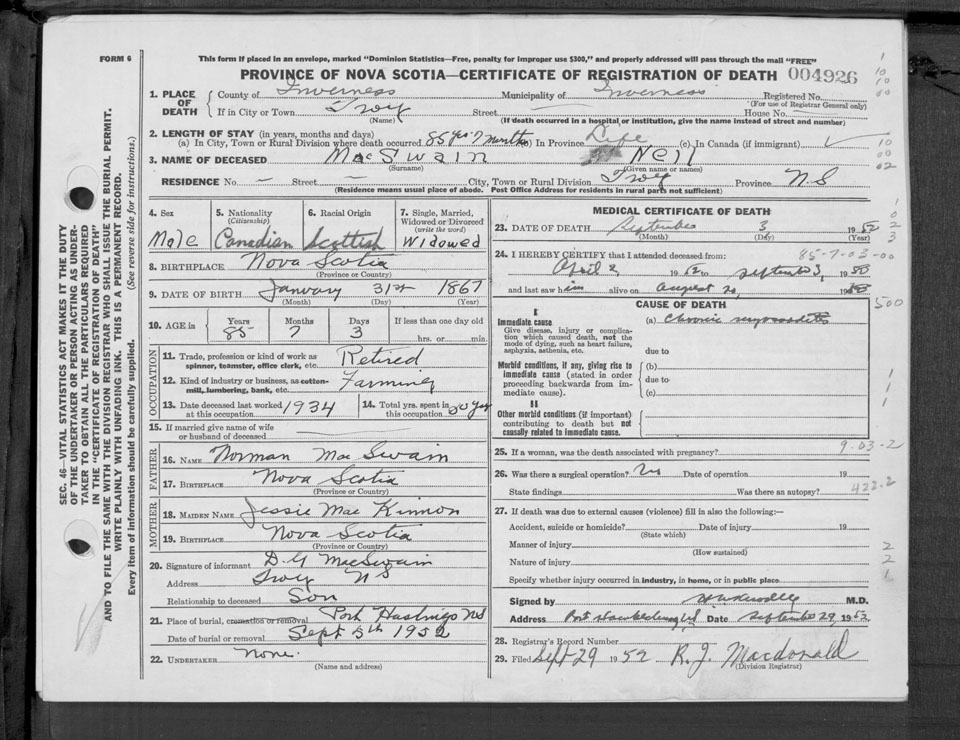 FORM 6
This form if placed in an envelope, marked "Dominion Statistics—Free, penalty for improper use $300," and properly addressed will pass through the mail "FREE"
PROVINCE OF NOVA SCOTIA—CERTIFICATE OF REGISTRATION OF DEATH 004926
1. PLACE OF DEATH
County of Inverness Municipality of Inverness Registered No.
(For use of Registrar General only)
If in City or Town Troy Street — House No. —
(Name) (If death occurred in a hospital or institution, give the name instead of street and number)
2. LENGTH OF STAY (in years, months and days)
(a) In City, Town or Rural Division where death occurred 85 yrs. 7 months (b) In Province Life (c) In Canada (if immigrant)
3. NAME OF DECEASED MacSwain Neil
(Surname) (Given name or names)
RESIDENCE No. — Street — City, Town or Rural Division Troy Province N.S
(Residence means usual place of abode. Post Office Address for residents in rural parts not sufficient)
4. Sex Male
5. Nationality (Citizenship) Canadian
6. Racial Origin Scottish
7. Single, Married, Widowed or Divorced (write the word) Widowed
8. BIRTHPLACE Nova Scotia
(Province or Country)
9. DATE OF BIRTH January 31st 1867
(Month) (Day) (Year)
10. AGE in Years 85 Months 7 Days 3 If less than one day old hrs. or min.
OCCUPATION
11. Trade, profession or kind of work as spinner, teamster, office clerk, etc. Retired
12. Kind of industry or business, as cotton-mill, lumbering, bank, etc. Farming
13. Date deceased last worked at this occupation 1934
14. Total yrs. spent in this occupation 50 yrs
15. If married give name of wife or husband of deceased —
FATHER
16. NAME Norman MacSwain
17. BIRTHPLACE Nova Scotia
(Province or Country)
MOTHER
18. MAIDEN NAME Jessie MacKinnon
19. BIRTHPLACE Nova Scotia
(Province or Country)
20. Signature of informant D. G MacSwain
Address Troy NS
Relationship to deceased Son
21. Place of burial, cremation or removal Port Hastings NS
Date of burial or removal Sept 5th 1952
22. UNDERTAKER None.
(Name and address)
MEDICAL CERTIFICATE OF DEATH
23. DATE OF DEATH September 3 1952
(Month) (Day) (Year)
24. I HEREBY CERTIFY that I attended deceased from: 85-7-03-00
April 2, 1952 to September 3, 19
and last saw him alive on August 20, 19
CAUSE OF DEATH
I
Immediate cause
Give disease, injury or complication which caused death, not the mode of dying, such as heart failure, asphyxia, asthenia, etc.
(a) Chronic myocarditis
due to
Morbid conditions, if any, giving rise to immediate cause (stated in order proceeding backwards from immediate cause).
(b)
due to
(c)
II
Other morbid conditions (if important) contributing to death but not causally related to immediate cause.
25. If a woman, was the death associated with pregnancy? 9-03-2
26. Was there a surgical operation? No Date of operation 19
State findings Was there an autopsy? 422-2
27. If death was due to external causes (violence) fill in also the following:—
Accident, suicide or homicide? Date of injury 19
(State which)
Manner of injury
(How sustained)
Nature of injury
Specify whether injury occurred in industry, in home, or in public place
Signed by M.D.
Address Port Date September 29, 1952
28. Registrar's Record Number
29. Filed Sept 29 1952 R. J. Macdonald
(Division Registrar)
SEC. 46—VITAL STATISTICS ACT MAKES IT THE DUTY
OF THE UNDERTAKER OR PERSON ACTING AS UNDER-
TAKER TO OBTAIN ALL THE PARTICULARS REQUIRED
IN THE "CERTIFICATE OF REGISTRATION OF DEATH"
AND TO FILE THE SAME WITH THE DIVISION REGISTRAR WHO SHALL ISSUE THE BURIAL PERMIT.
WRITE PLAINLY WITH UNFADING INK. THIS IS A PERMANENT RECORD.
Every item of information should be carefully supplied. (See reverse side for instructions.)